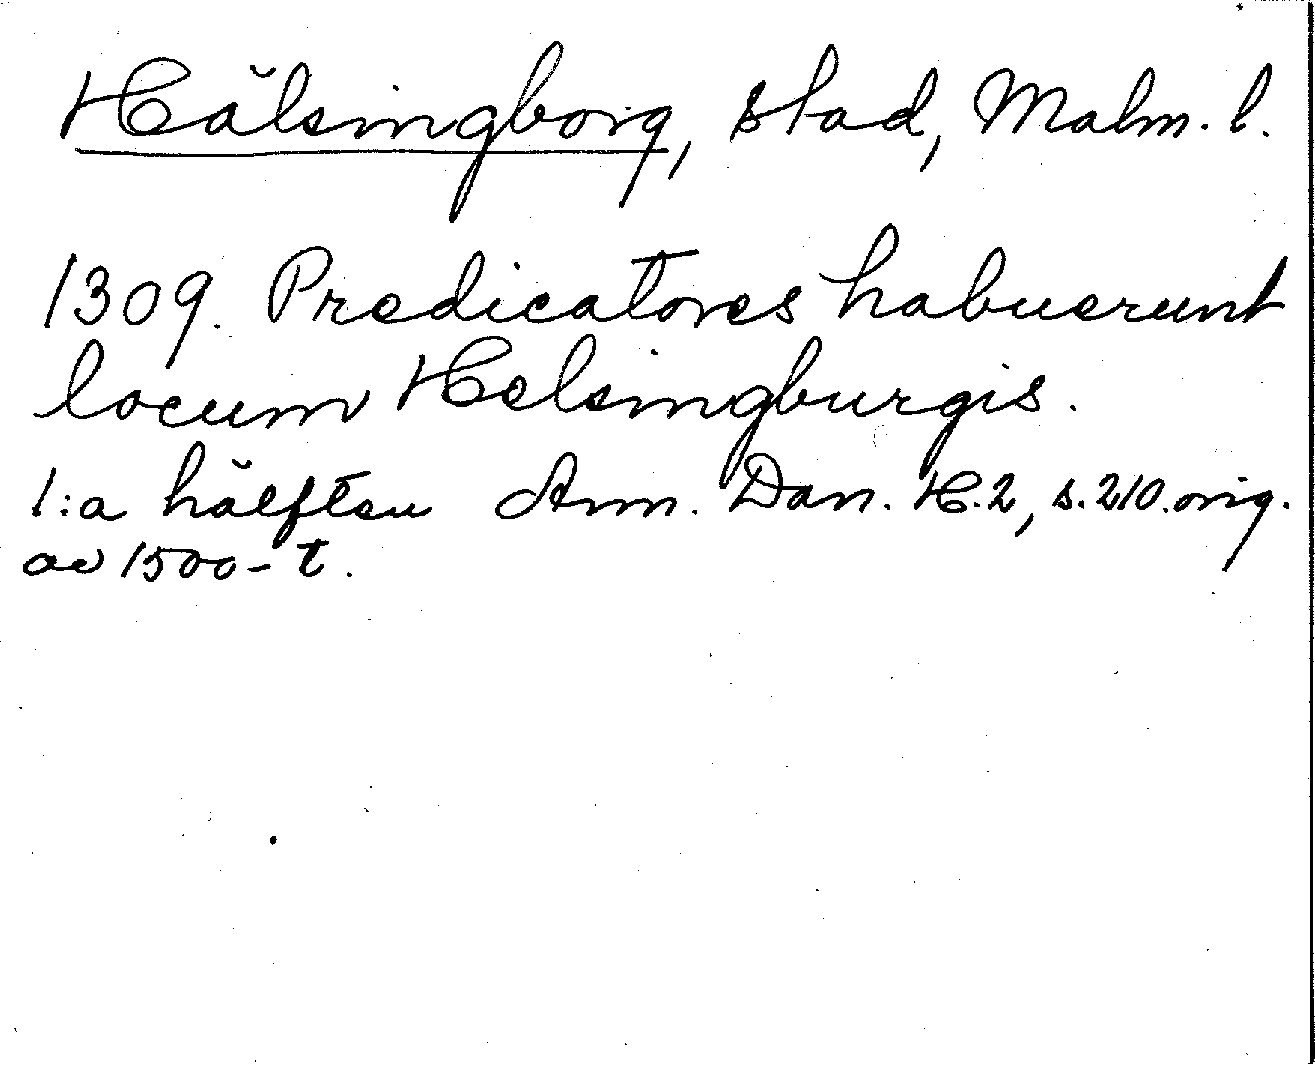 Hälsingborg, stad, Malm. l.
1309. Predicatores habuerunt
locum Helsingburgis.
1:a hälften Ann. Dan. H.2, s.210.orig.
av 1500-t.